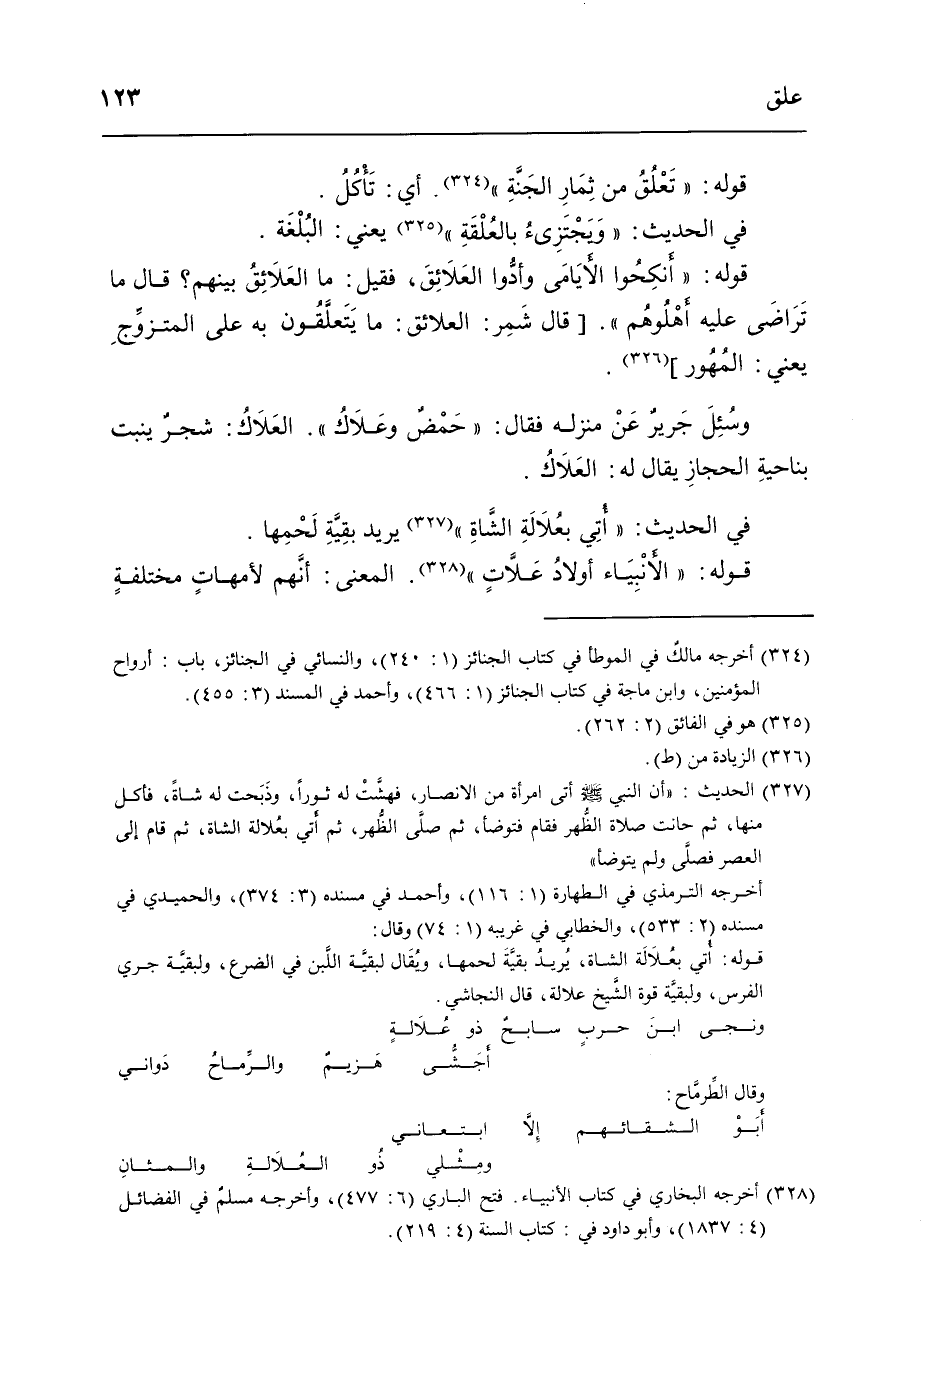 علق ١٢٣
قوله: « تَعْلُقُ من ثِمَارِ الجَنَّةِ »(٣٢٤). أي: تَأْكُلُ .
في الحديث: « وَيَجْتَزِىءُ بالعُلْقَةِ »(٣٢٥) يعني: البُلْغَة .
قوله: « أَنكِحُوا الأَيَامَى وأدُّوا العَلَائِقَ، فقيل: ما العَلَائِقُ بينهم؟ قال ما
تَرَاضَى عليه أَهْلُوهُم ». [ قال شَمِر: العلائق: ما يَتَعلَّقُون به على المتزوِّجِ
يعني: المُهُور ](٣٢٦) .
وسُئِلَ جَريرٌ عَنْ منزله فقال: « حَمْضٌ وعَلَاكُ ». العَلَاكُ: شجرٌ ينبت
بناحيةِ الحجازِ يقال له: العَلَاكُ .
في الحديث: « أُتِي بعُلَالَةِ الشَّاةِ »(٣٢٧) يريد بقِيَّةِ لَحْمِها .
قوله: « الأَنْبِيَاء أولادُ عَلَّاتٍ »(٣٢٨). المعنى: أنَّهم لأمهاتٍ مختلفةٍ
(٣٢٤) أخرجه مالكٌ في الموطأ في كتاب الجنائز (١: ٢٤٠)، والنسائي في الجنائز، باب : أرواح
المؤمنين، وابن ماجة في كتاب الجنائز (١: ٤٦٦)، وأحمد في المسند (٣: ٤٥٥).
(٣٢٥) هو في الفائق (٢: ٢٦٢).
(٣٢٦) الزيادة من (ط).
(٣٢٧) الحديث : «أن النبي ﷺ أتى امرأة من الانصار، فهشَّتْ له ثوراً، وذبَحت له شاةً، فأكل
منها، ثم حانت صلاة الظُّهر فقام فتوضأ، ثم صلَّى الظُّهر، ثم أُتي بعُلالة الشاة، ثم قام إلى
العصر فصلَّى ولم يتوضأ»
أخرجه الترمذي في الطهارة (١: ١١٦)، وأحمد في مسنده (٣: ٣٧٤)، والحميدي في
مسنده (٢: ٥٣٣)، والخطابي في غريبه (١: ٧٤) وقال:
قوله: أُتي بعُلَالَة الشاة، يُريدُ بقيَّةَ لحمها، ويُقَال لبقيَّة اللَّبن في الضرع، ولبقيَّة جري
الفرس، ولبقيَّة قوة الشَّيخ علالة، قال النجاشي .
ونجى ابنَ حربٍ سابحٌ ذو عُلَالةٍ
أَجَشُّى هَزيمٌ والرِّماحُ دَواني
وقال الطِّرمَّاح:
أَبَوْ الشقائهم إلَّا ابتعاني
ومِثْلي ذُو العُلَالَةِ والمثانِ
(٣٢٨) أخرجه البخاري في كتاب الأنبياء. فتح الباري (٦: ٤٧٧)، وأخرجه مسلمٌ في الفضائل
(٤: ١٨٣٧)، وأبو داود في : كتاب السنة (٤: ٢١٩).